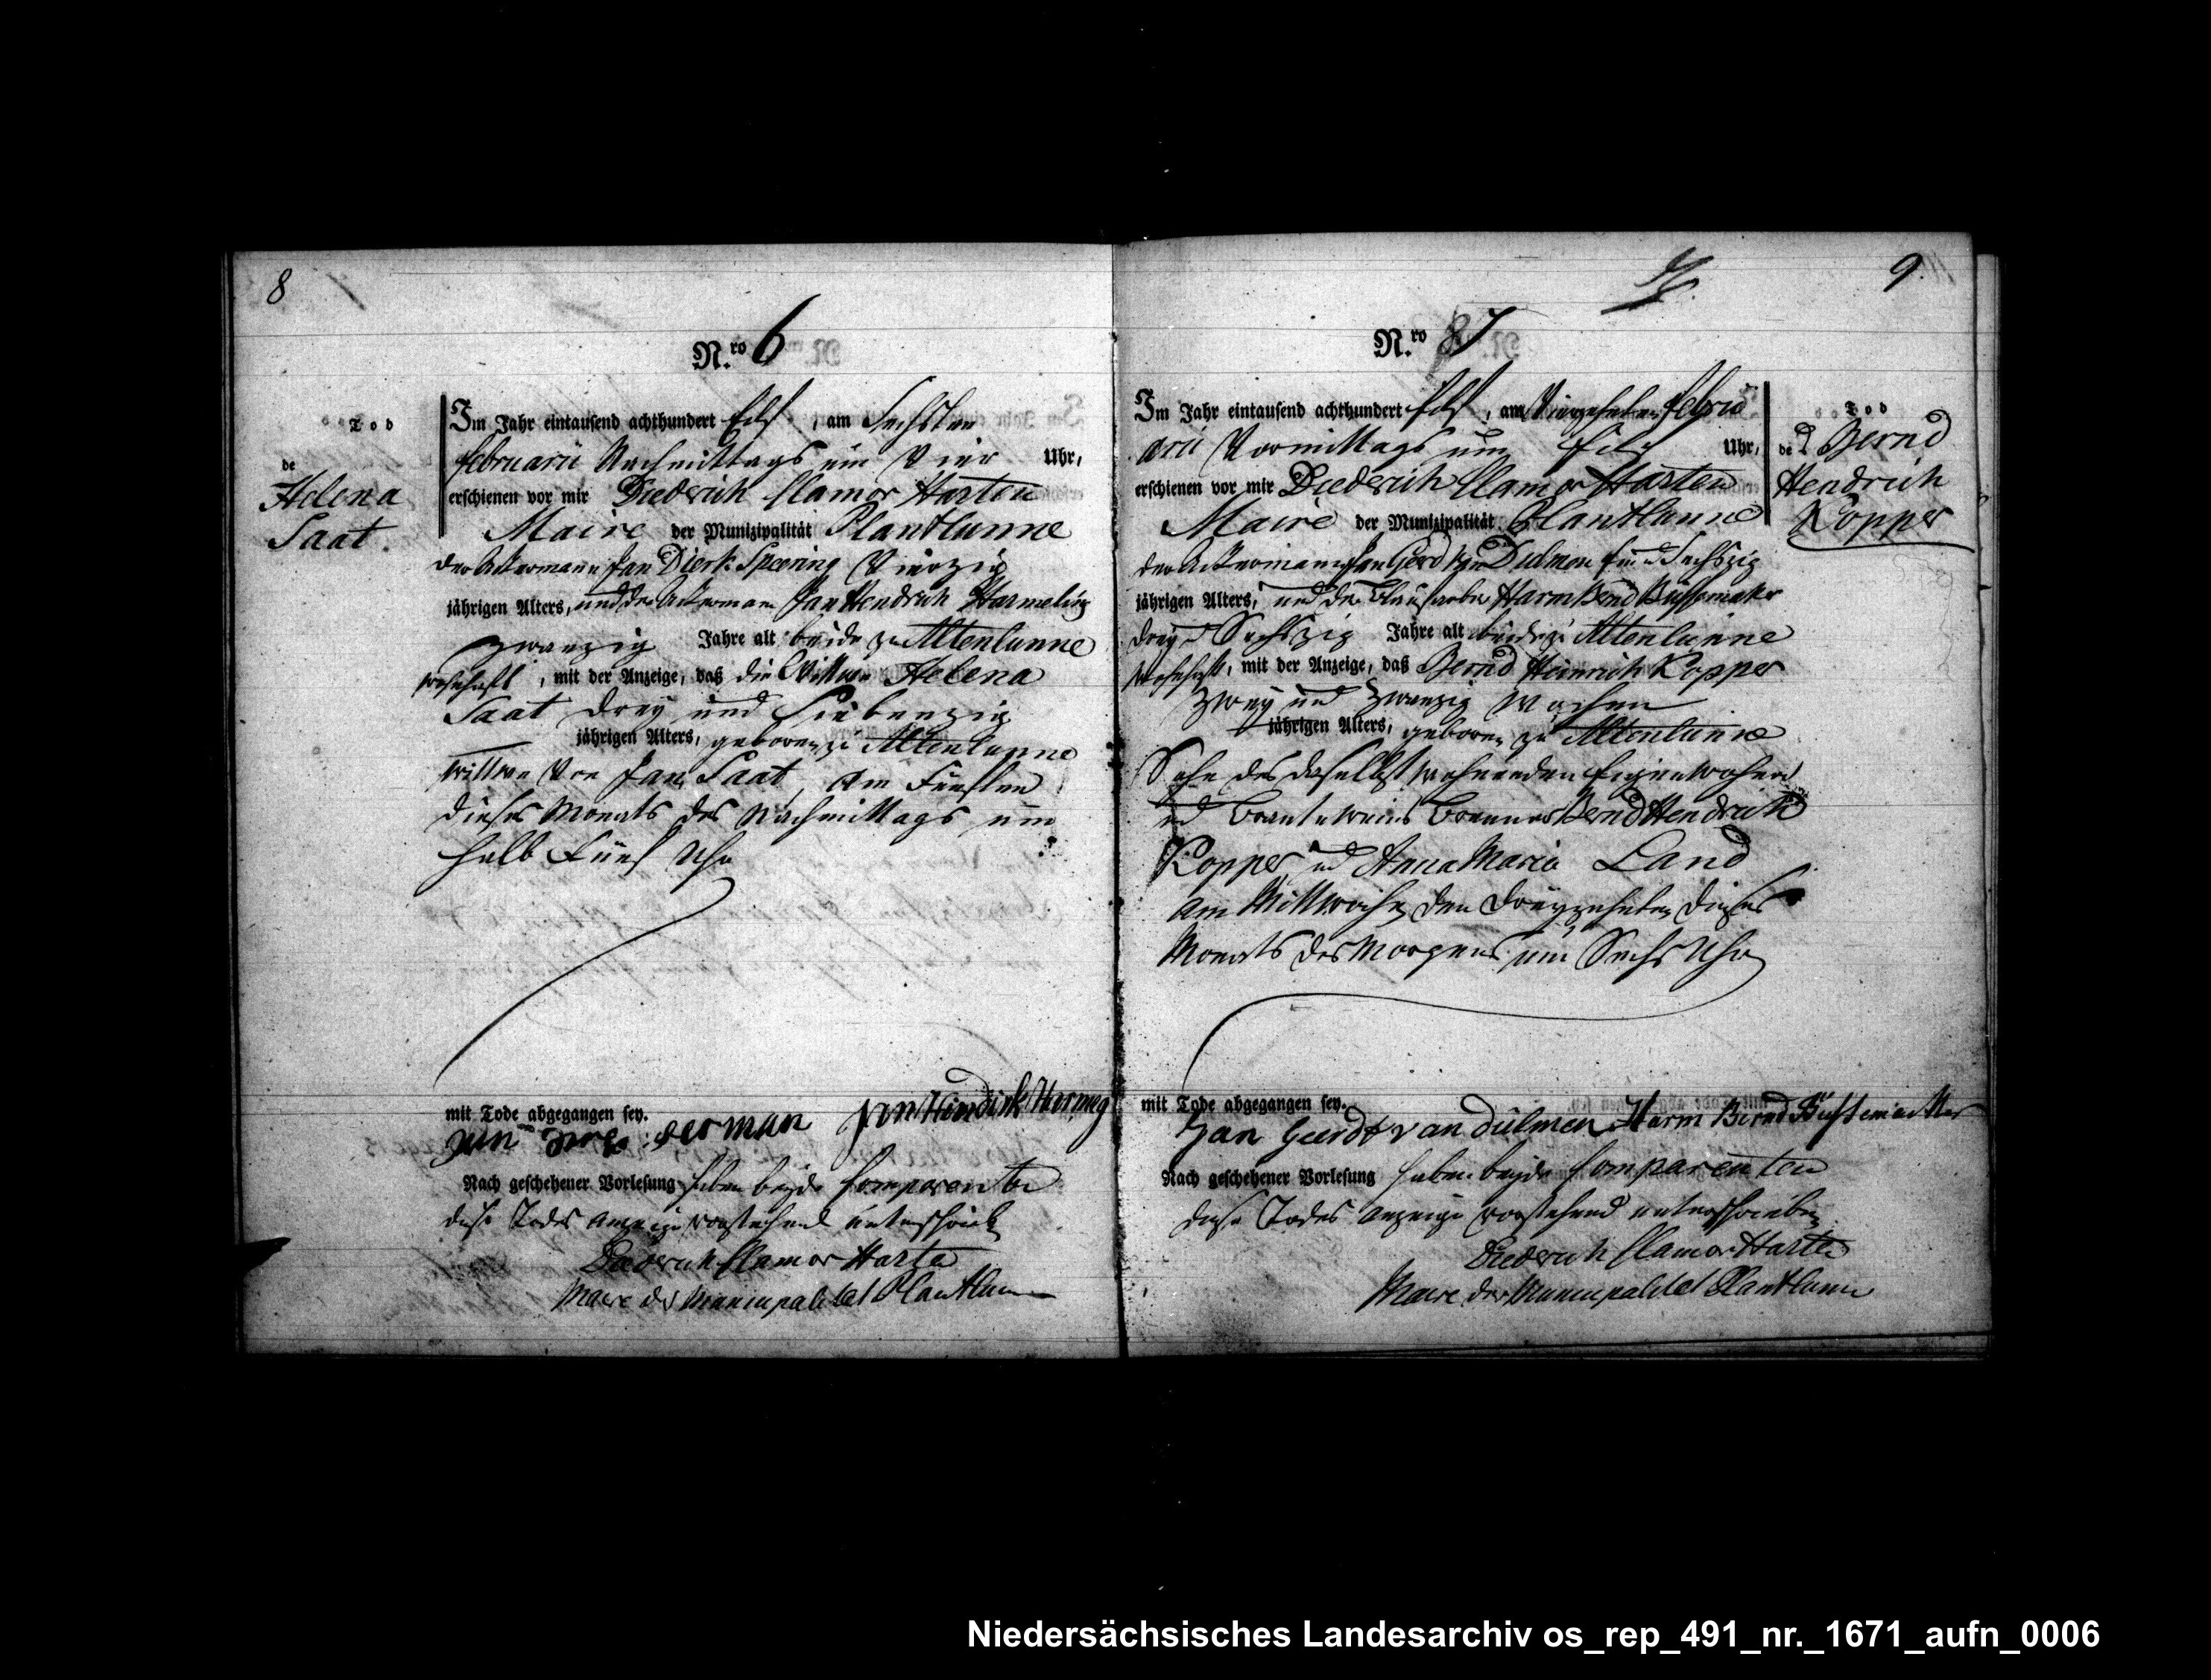 8
N.ro 6
Tod
de
Helena
Saat.
Im Jahr eintausend achthundert Eilf, am Sechsten
februarii Nachmittags um Vier Uhr,
erschienen vor mir Diederich Clamor Harten
Maire der Munizipalität Plantlünne
der Ackermann Jan Dierk Speering Vierzig
jährigen Alters, und der Ackermann Jan Hendrich Harmeling
zwanzig Jahre alt beide zu Altenlünne
wohnhaft, mit der Anzeige, daß die Wittwe Helena
Saat drey und Siebenzig
jährigen Alters, geboren zu Altenlünne
Wittwe von Jan Saat, am Fünften
dieses Monats des Nachmittags um
halb Fünf Uhr
mit Tode abgegangen sey.
Jan Hindirk
Nach geschehener Vorlesung haben beyde Comparenten
diese Todes Anzeige vorstehend unterschrieb
Diederich Clamor Harten
Maire der Municipalitet Plantlünne
9.
N.ro 7
Tod
de Bernd
Hendrich
Kopper
Im Jahr eintausend achthundert Eilf, am Vierzehnten Febru
arii Vormittags um Eilf Uhr,
erschienen vor mir Diederich Clamor Harten
Maire der Munizipalität Plantlünne
der Ackermann Jan Gerd van Dulmen fünf und Sechszig
jährigen Alters, und der Harm Bernd Bussemaker
drey und Sechszig Jahre alt beide zu Altenlünne
wohnhaft, mit der Anzeige, daß Bernd Heinrich Kopper
zwey und zwanzig Wochen
jährigen Alters, geboren zu Altenlünne
Sohn des daselbst wohnenden Eigenwohner
und Branteweins Brenner Bernd Hendrich
Kopper und Anna Maria Land
am Mittwoche den dreyzehnten dieses
Monats des Morgens um Sechs Uhr
mit Tode abgegangen sey.
Jan Geerdt van dülmen Harm Bernd Büssemacker
Nach geschehener Vorlesung haben beyde Comparenten
diese Todes Anzeige vorstehend unterschrieben
Diederich Clamor Harten
Maire der Municipalitet Plantlünne
Niedersächsisches Landesarchiv os_rep_491_nr._1671_aufn_0006